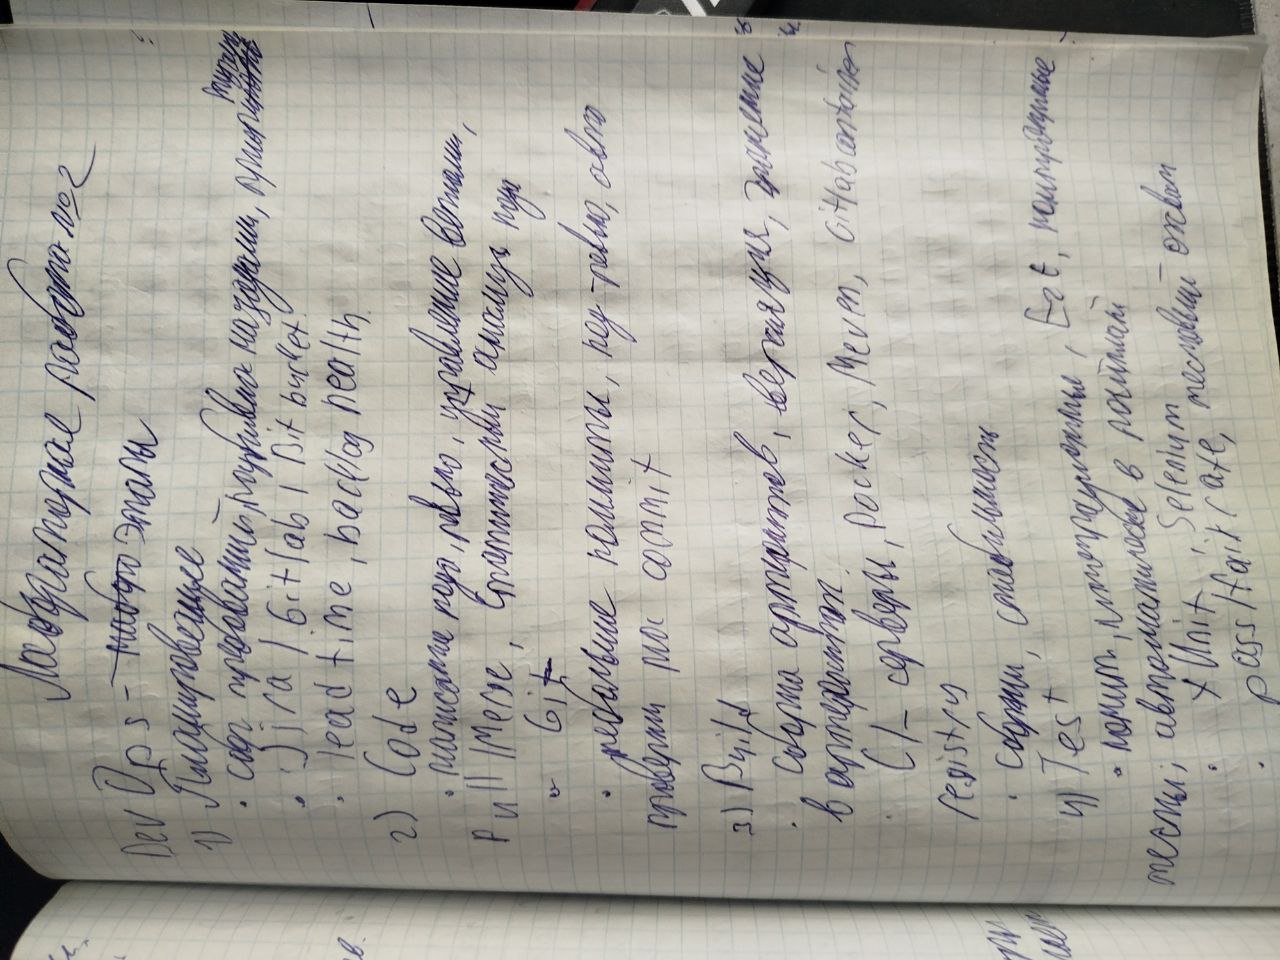 Лабораторная работа №2
DevOps - этапы
1) Планирование
• сбор требований, разбивка на задачи, приорит
• Jira / Gitlab / Bitbucket
• lead time, backlog health
2) Code
• написание кода, ревью, управление ветками,
Pull/Merge, статический анализ кода
Git
• небольшие коммиты, код-ревью, авто
проверки pre commit
3) Build
• сборка артефактов, версия, хранение
в артефактах
CI-серверы, Docker, Maven, GitLab container
registry
• сборки, стабильность
4) Test
• юнит, интеграционные, нагрузочные
тесты, автоматически в пайплайн
• xUnit, Selenium
• pass/fail rate, тестовый охват